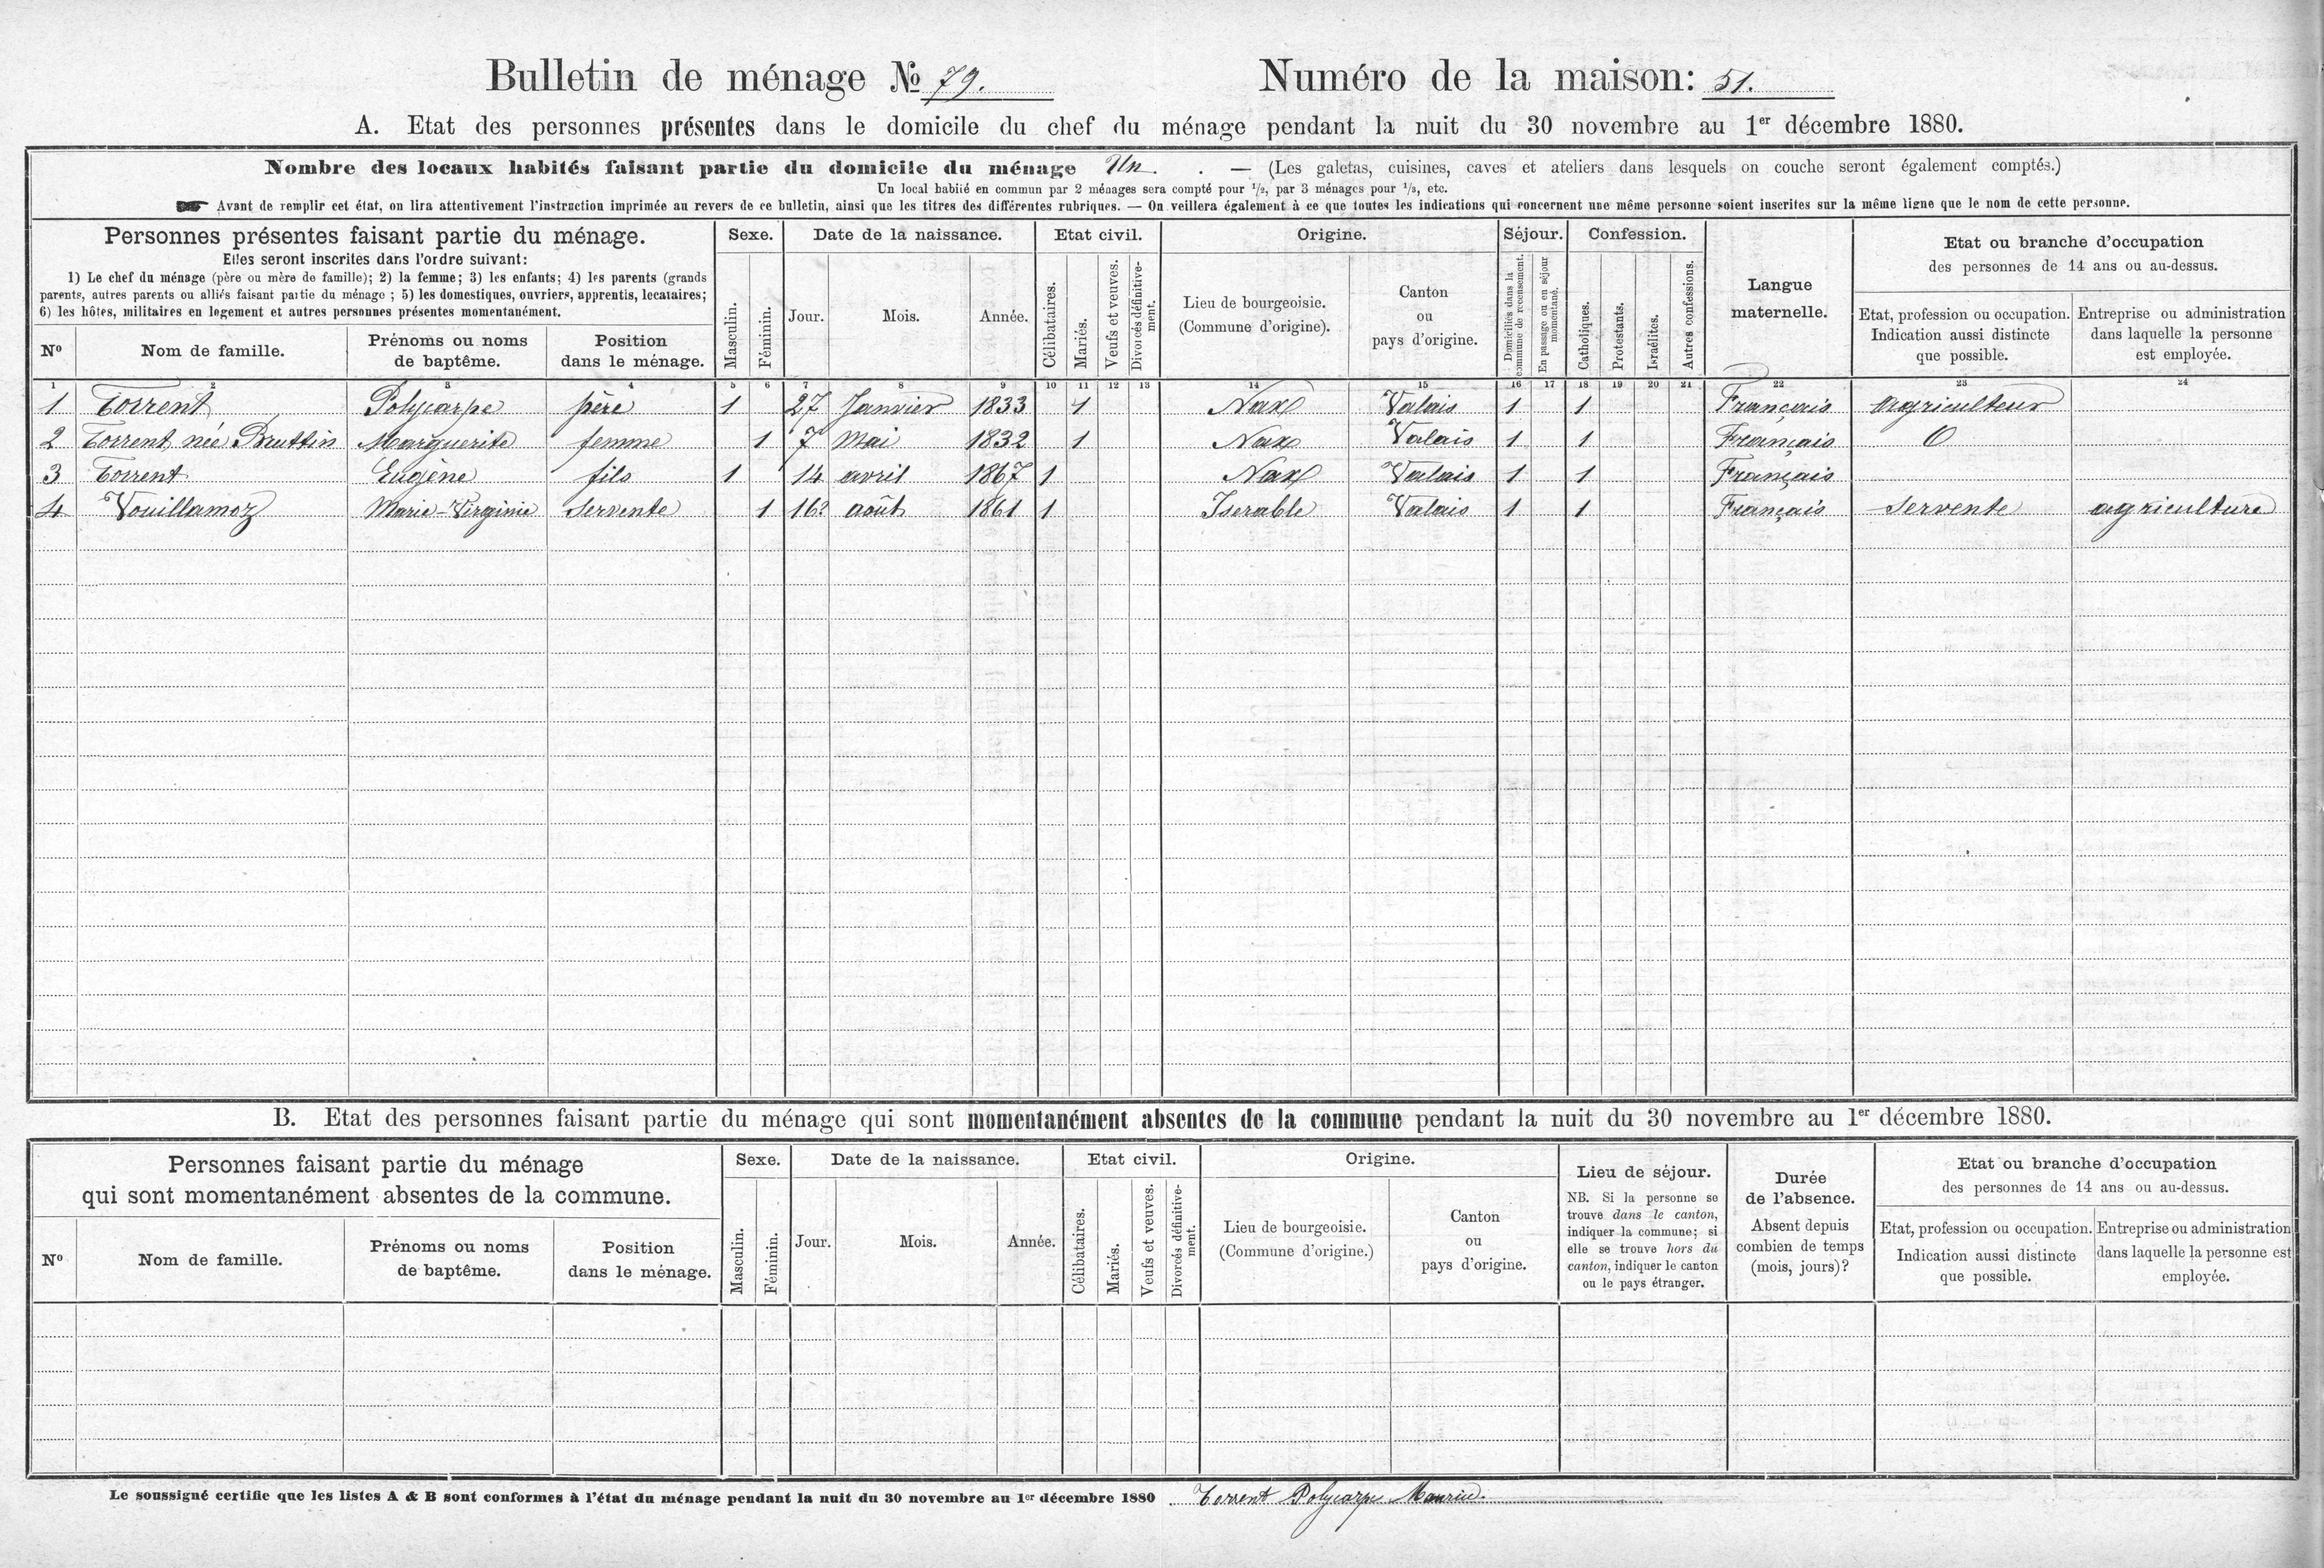 Bulletin de ménage № 79. Numéro de la maison: 51.
A. Etat des personnes présentes dans le domicile du chef du ménage pendant la nuit du 30 novembre au 1er décembre 1880.
Nombre des locaux habités faisant partie du domicile du ménage Un. . — (Les galetas, cuisines, caves et ateliers dans lesquels on couche seront également comptés.)
Un local habité en commun par 2 ménages sera compté pour 1/2, par 3 ménages pour 1/3, etc.
Avant de remplir cet état, on lira attentivement l'instruction imprimée au revers de ce bulletin, ainsi que les titres des différentes rubriques. — On veillera également à ce que toutes les indications qui concernent une même personne soient inscrites sur la même ligne que le nom de cette personne.
Personnes présentes faisant partie du ménage.
Elles seront inscrites dans l'ordre suivant:
1) Le chef du ménage (père ou mère de famille); 2) la femme; 3) les enfants; 4) les parents (grands
parents, autres parents ou alliés faisant partie du ménage; 5) les domestiques, ouvriers, apprentis, locataires;
6) les hôtes, militaires en logement et autres personnes présentes momentanément.
No
Nom de famille.
Prénoms ou noms
de baptême.
Position
dans le ménage.
Sexe.
Masculin.
Féminin.
Date de la naissance.
Jour.
Mois.
Année.
Etat civil.
Célibataires.
Mariés.
Veufs et veuves.
Divorcés définitive-
ment.
Origine.
Lieu de bourgeoisie.
(Commune d'origine).
Canton
ou
pays d'origine.
Séjour.
Domiciliés dans la
commune de recensement.
En passage ou en séjour
momentané.
Confession.
Catholiques.
Protestants.
Israélites.
Autres confessions.
Langue
maternelle.
Etat ou branche d'occupation
des personnes de 14 ans ou au-dessus.
Etat, profession ou occupation.
Indication aussi distincte
que possible.
Entreprise ou administration
dans laquelle la personne
est employée.
1 2 3 4 5 6 7 8 9 10 11 12 13 14 15 16 17 18 19 20 21 22 23 24
1 Torrent Polycarpe père 1 27 Janvier 1833 1 Nax Valais 1 1 Français agriculteur
2 Torrent née Bruttin Marguerite femme 1 7 Mai 1832 1 Nax Valais 1 1 Français 0
3 Torrent Eugène fils 1 14 avril 1867 1 Nax Valais 1 1 Français
4 Vouillamoz Marie-Virginie Servente 1 16? août 1861 1 Iserable Valais 1 1 Français Servente agriculture
B. Etat des personnes faisant partie du ménage qui sont momentanément absentes de la commune pendant la nuit du 30 novembre au 1er décembre 1880.
Personnes faisant partie du ménage
qui sont momentanément absentes de la commune.
No
Nom de famille.
Prénoms ou noms
de baptême.
Position
dans le ménage.
Sexe.
Masculin.
Féminin.
Date de la naissance.
Jour.
Mois.
Année.
Etat civil.
Célibataires.
Mariés.
Veufs et veuves.
Divorcés définitive-
ment.
Origine.
Lieu de bourgeoisie.
(Commune d'origine.)
Canton
ou
pays d'origine.
Lieu de séjour.
NB. Si la personne se
trouve dans le canton,
indiquer la commune; si
elle se trouve hors du
canton, indiquer le canton
ou le pays étranger.
Durée
de l'absence.
Absent depuis
combien de temps
(mois, jours)?
Etat ou branche d'occupation
des personnes de 14 ans ou au-dessus.
Etat, profession ou occupation.
Indication aussi distincte
que possible.
Entreprise ou administration
dans laquelle la personne est
employée.
Le soussigné certifie que les listes A & B sont conformes à l'état du ménage pendant la nuit du 30 novembre au 1er décembre 1880 Torrent Polycarpe Maurice.